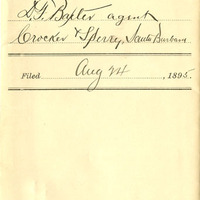 D. F. Baxter agent
Crocker & Sperry, Santa Barbara
Filed Aug 24, 1895.